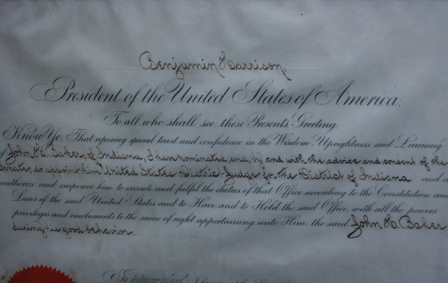 Benjamin Harrison,
President of the United States of America,
To all who shall see these Presents Greeting
Know Ye; That reposing special trust and confidence in the Wisdom Uprightness and Learning
John H. Baker, of Indiana, I have nominated, and, by and with the advice and consent of the
Senate, do appoint him United States District Judge for the District of Indiana and do
authorize and empower him to execute and fulfil the duties of that Office according to the Constitution and
Laws of the said United States and to Have and to Hold the said Office, with all the powers
privileges and emoluments to the same of right appertaining unto Him, the said John H. Baker
during his good behavior.
In testimony